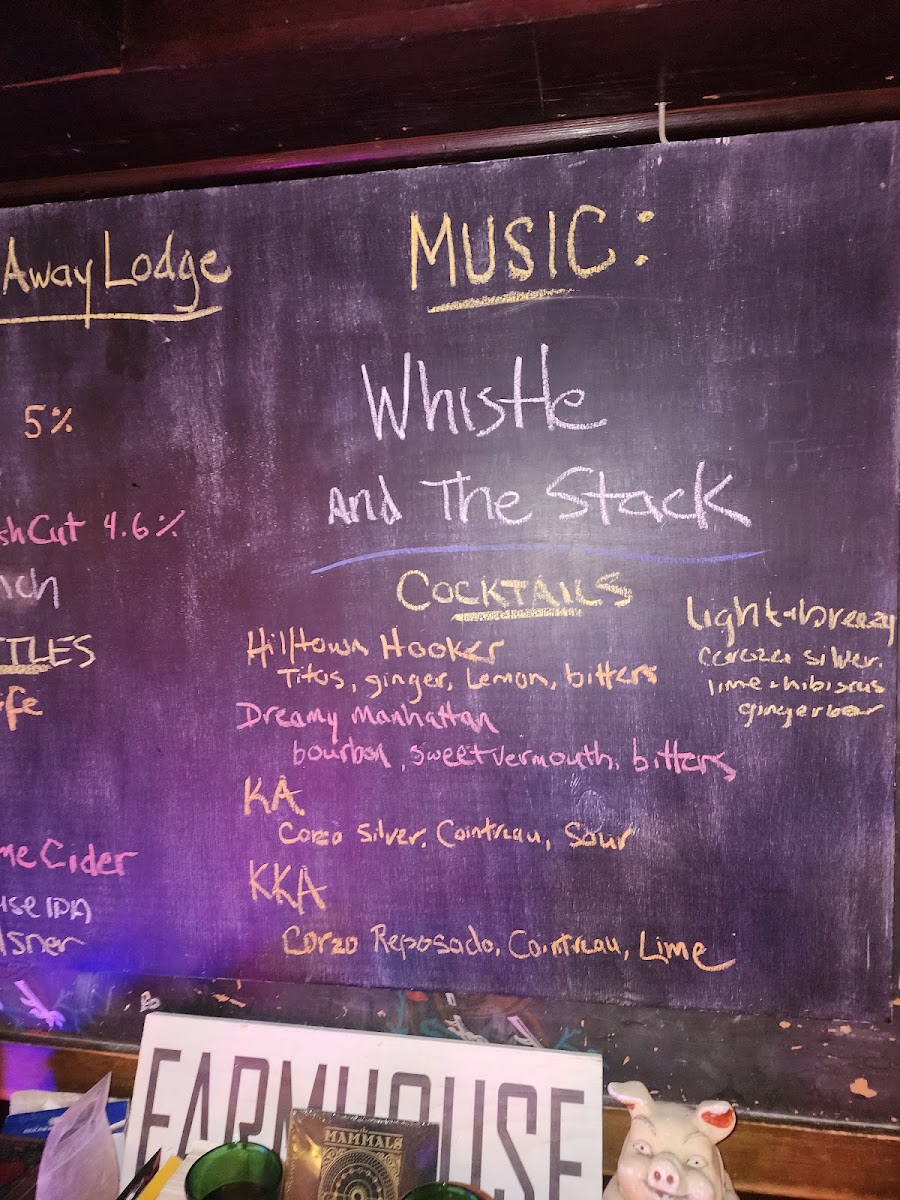 Away Lodge
5%
shCut 4.6%
nch
TLES
fe
me Cider
use IPA
lsner
MUSIC:
Whistle
And The Stack
COCKTAILS
Hilltown Hooker
Titos, ginger, Lemon, bitters
Dreamy Manhattan
bourbon, sweet vermouth, bitters
KA
Corzo Silver, Cointreau, Sour
KKA
Corzo Reposado, Cointreau, Lime
Light + breezy
silver,
lime + hibiscus
gingerbeer
FARMHOUSE
MAMMALS